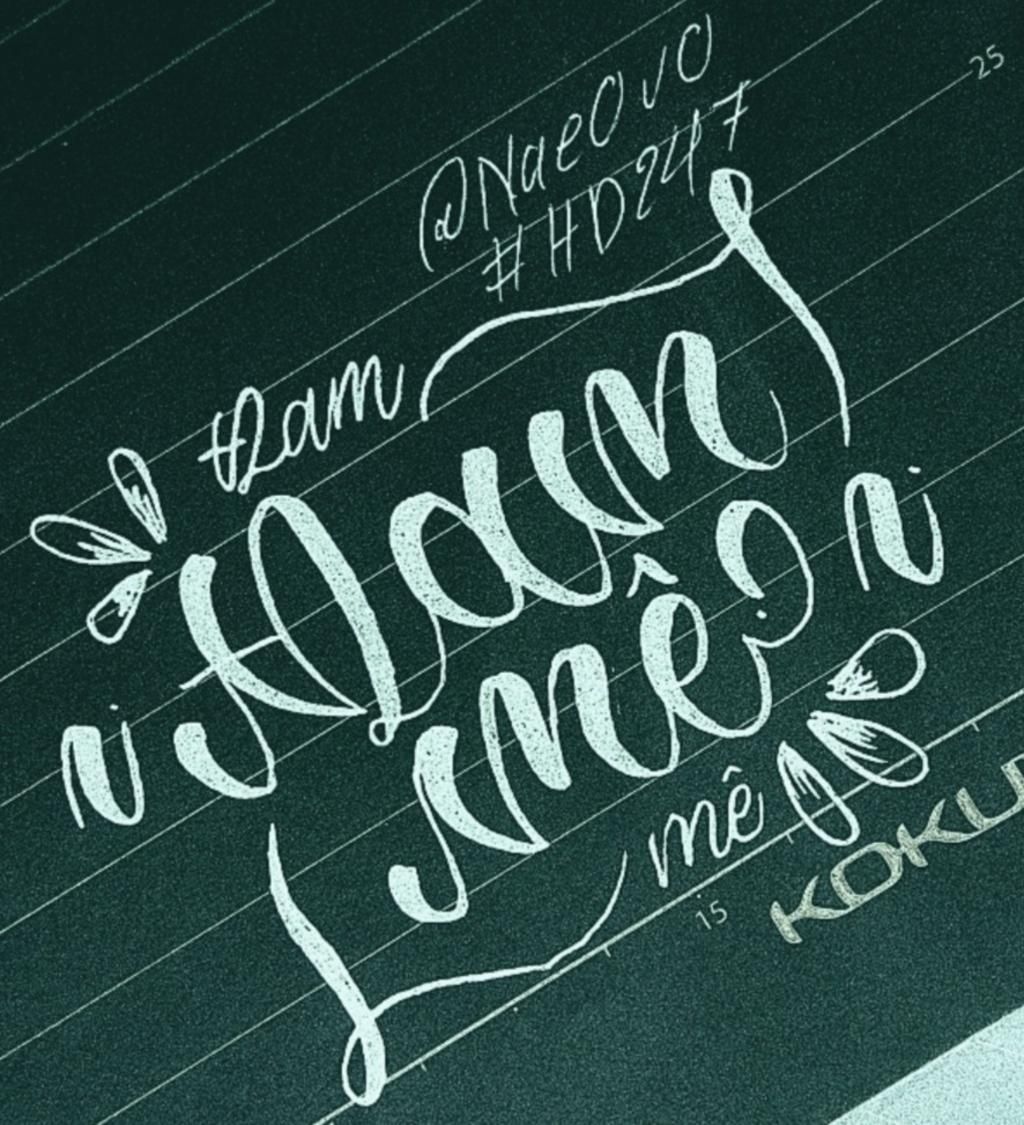 25
@NaeOvO
#HD247
Đam
Đam
mê
n
n
mê
15
KOKU